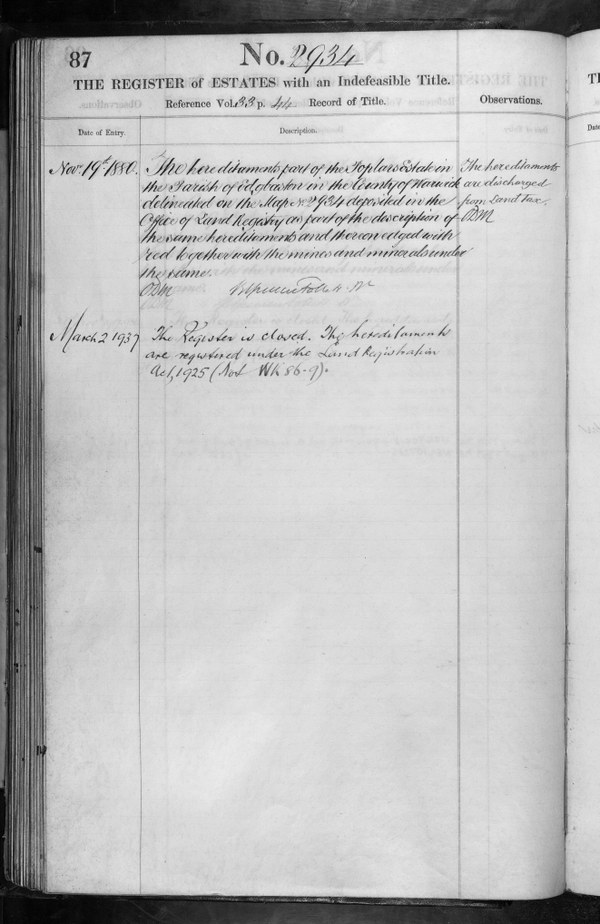 87
No. 2934
THE REGISTER of ESTATES with an Indefeasible Title.
Reference Vol. 33 p. 44 Record of Title.
Observations.
Date of Entry.
Description.
Novr. 19th 1880.
The hereditaments part of the Poplars Estate in
the Parish of Edgbaston in the County of Warwick
delineated on the Map No. 2934 deposited in the
Office of Land Registry as part of the description of
the same hereditaments and thereon edged with
red together with the mines and minerals under
the same.
The hereditaments
are discharged
from Land Tax.
March 2 1937
The Register is closed. The hereditaments
are registered under the Land Registration
Act, 1925 (Not Wk 86-9).